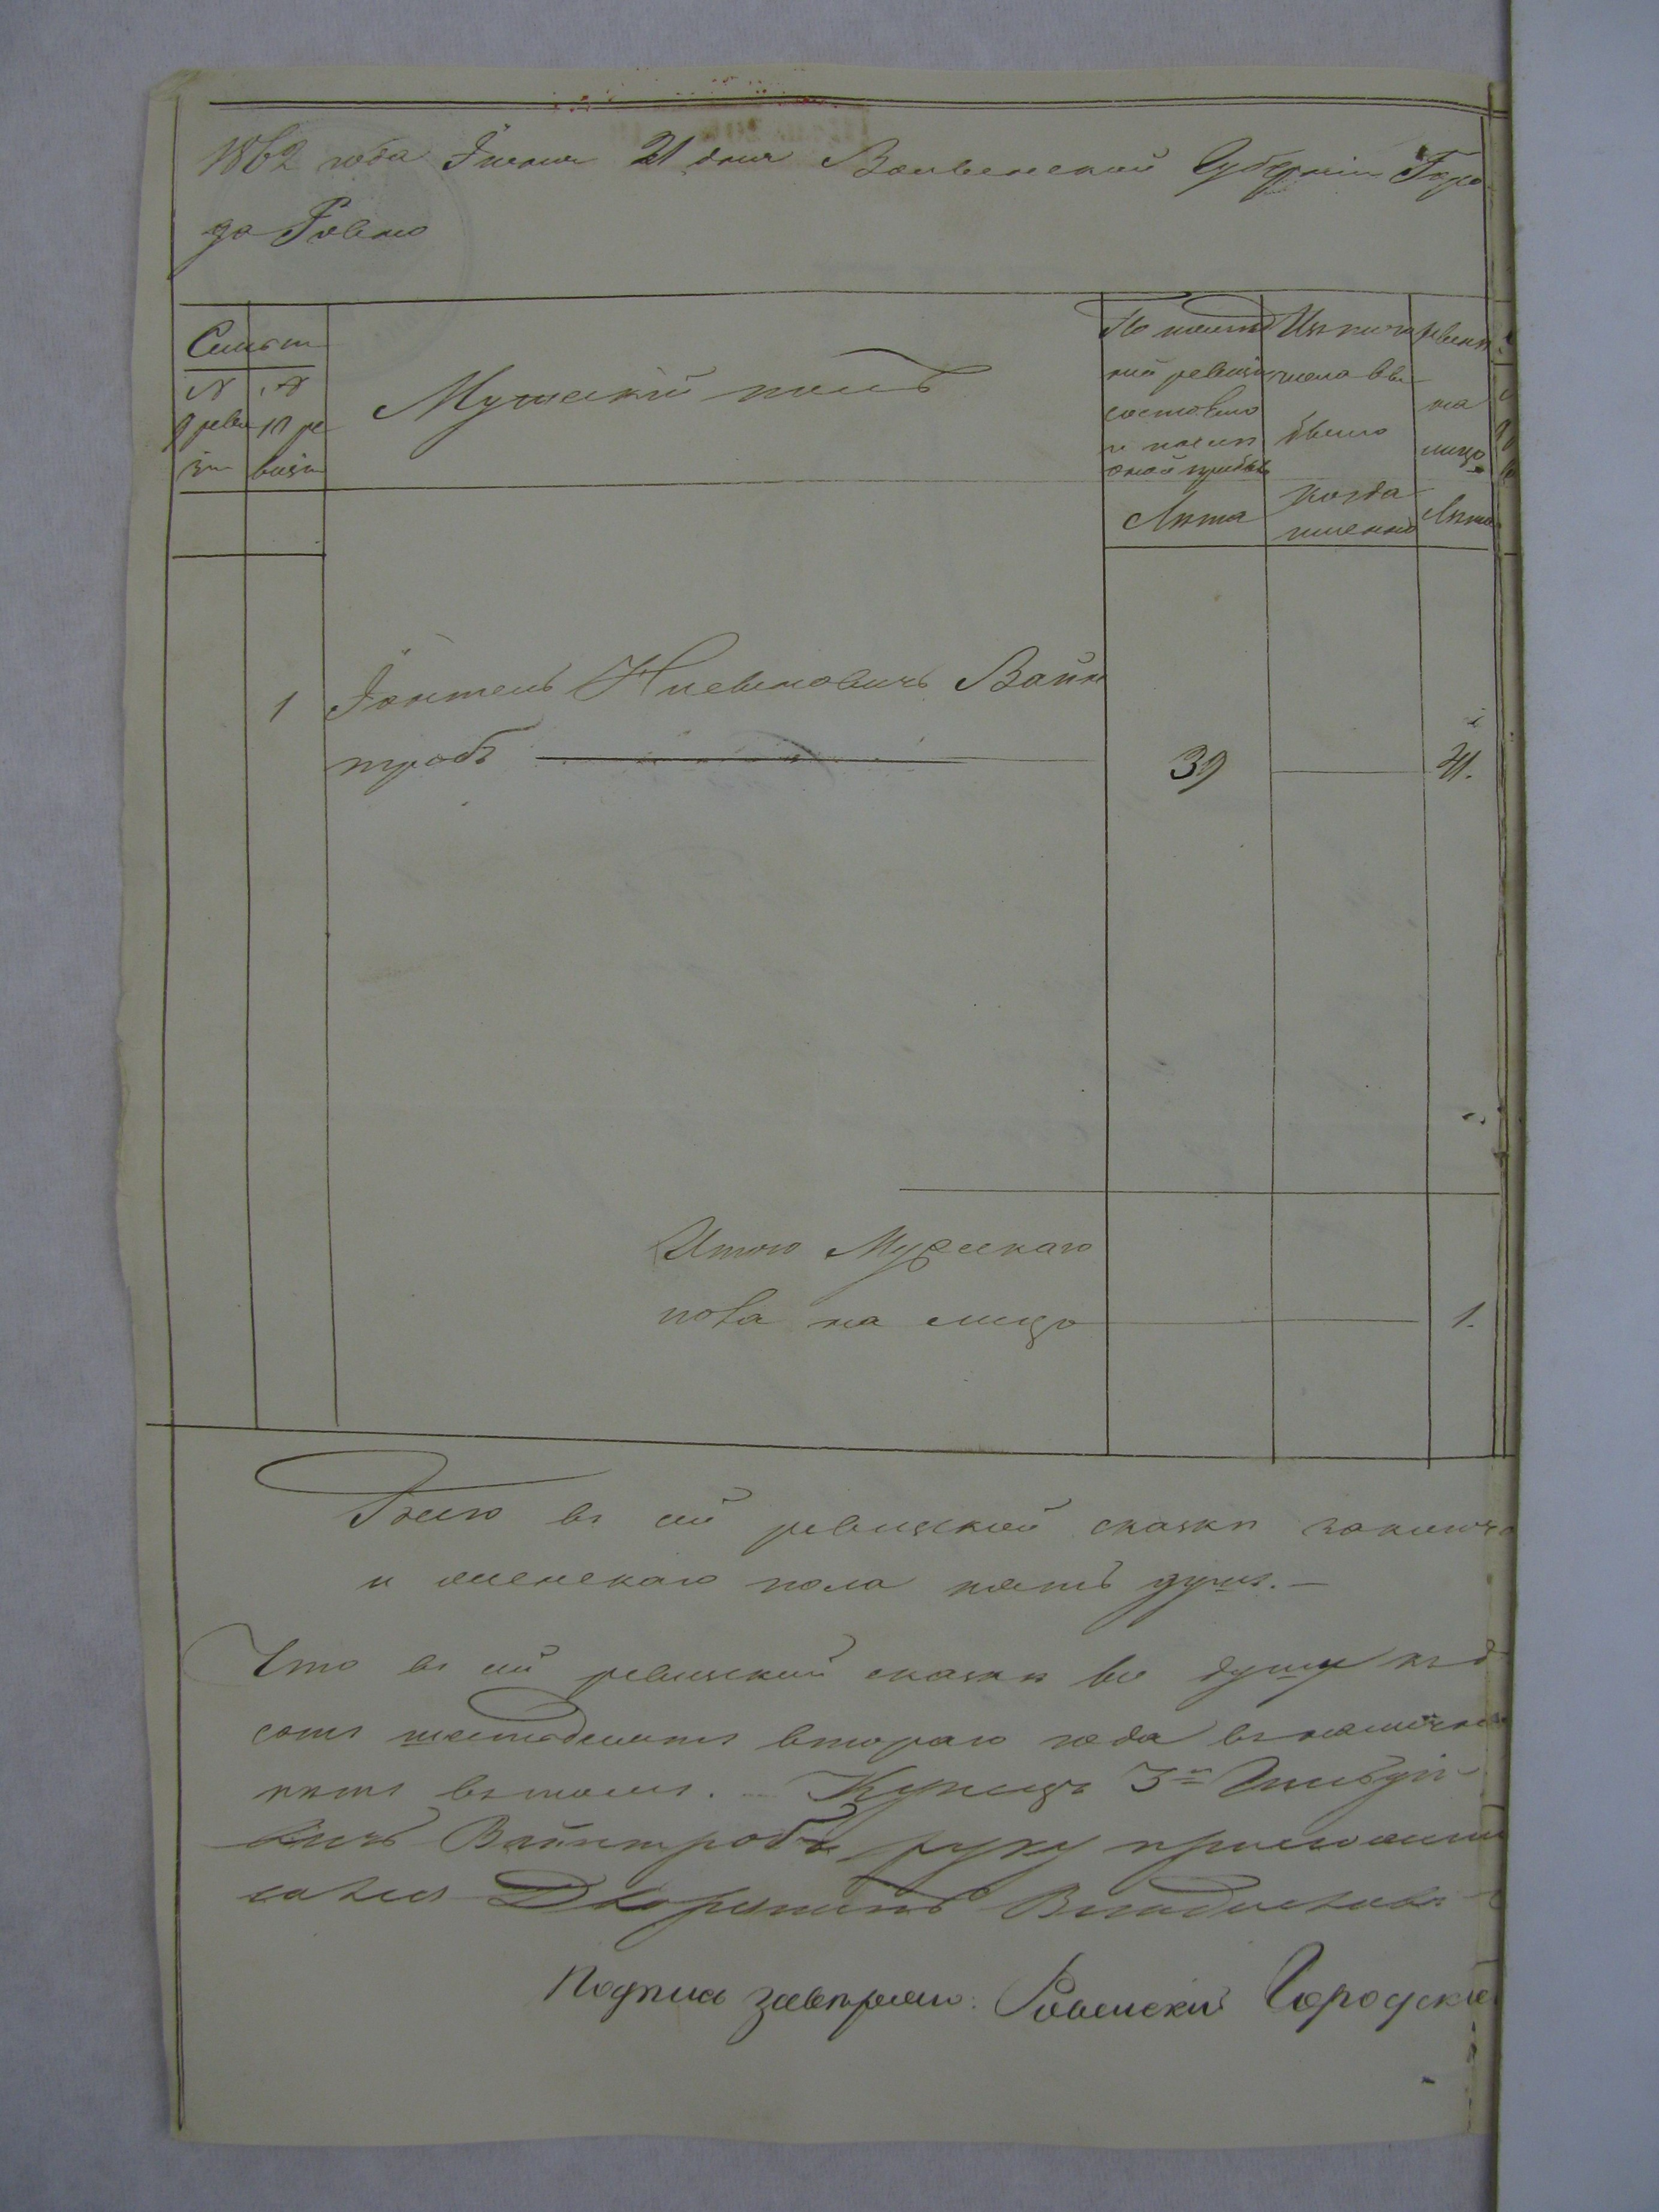 1862 года Іюня 21 дня Волынской Губерніи Горо
да Ровно
Семьи
№ 9 реви
зіи
№ 10 ре
визіи
Мужескій полъ
По послѣд
ней ревизіи
состояло
и послѣ
оной прибыло
Лѣта
Изъ того
числа вы
было
когда
именно
Нынѣ
на
лицо
Лѣта
1 Іонтель Вайн
тробъ 39 41.
Итого Мужескаго
пола на лицо 1.
Всего въ сей ревизской сказкѣ заключ
и женскаго пола пять душъ.—
Что въ сей ревизской сказкѣ все души
сотъ шестьдесятъ втораго года въ
нѣтъ въ томъ. Купецъ 3й Гильдіи
вичъ Вайнтробъ руку приложилъ
Дворянинъ
Подпись завѣряю: Ровенскій Городской